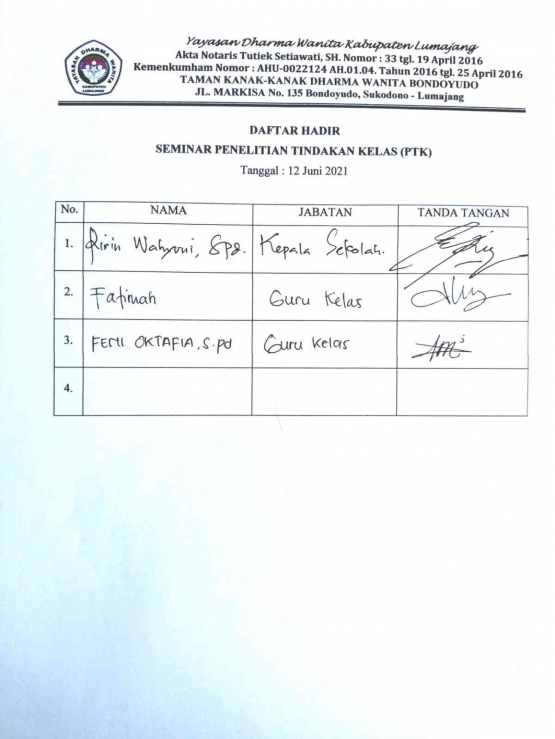 YAYASAN DHARMA WANITA
KABUPATEN
LUMAJANG
Yayasan Dharma Wanita Kabupaten Lumajang
Akta Notaris Tutiek Setiawati, SH. Nomor : 33 tgl. 19 April 2016
Kemenkumham Nomor : AHU-0022124 AH.01.04. Tahun 2016 tgl. 25 April 2016
TAMAN KANAK-KANAK DHARMA WANITA BONDOYUDO
JL. MARKISA No. 135 Bondoyudo, Sukodono - Lumajang
DAFTAR HADIR
SEMINAR PENELITIAN TINDAKAN KELAS (PTK)
Tanggal : 12 Juni 2021
No. NAMA JABATAN TANDA TANGAN
1. Ririn Wahyuni, Spd. Kepala Sekolah.
2. Fatimah Guru Kelas
3. FEMI OKTAFIA, S.pd Guru Kelas
4.